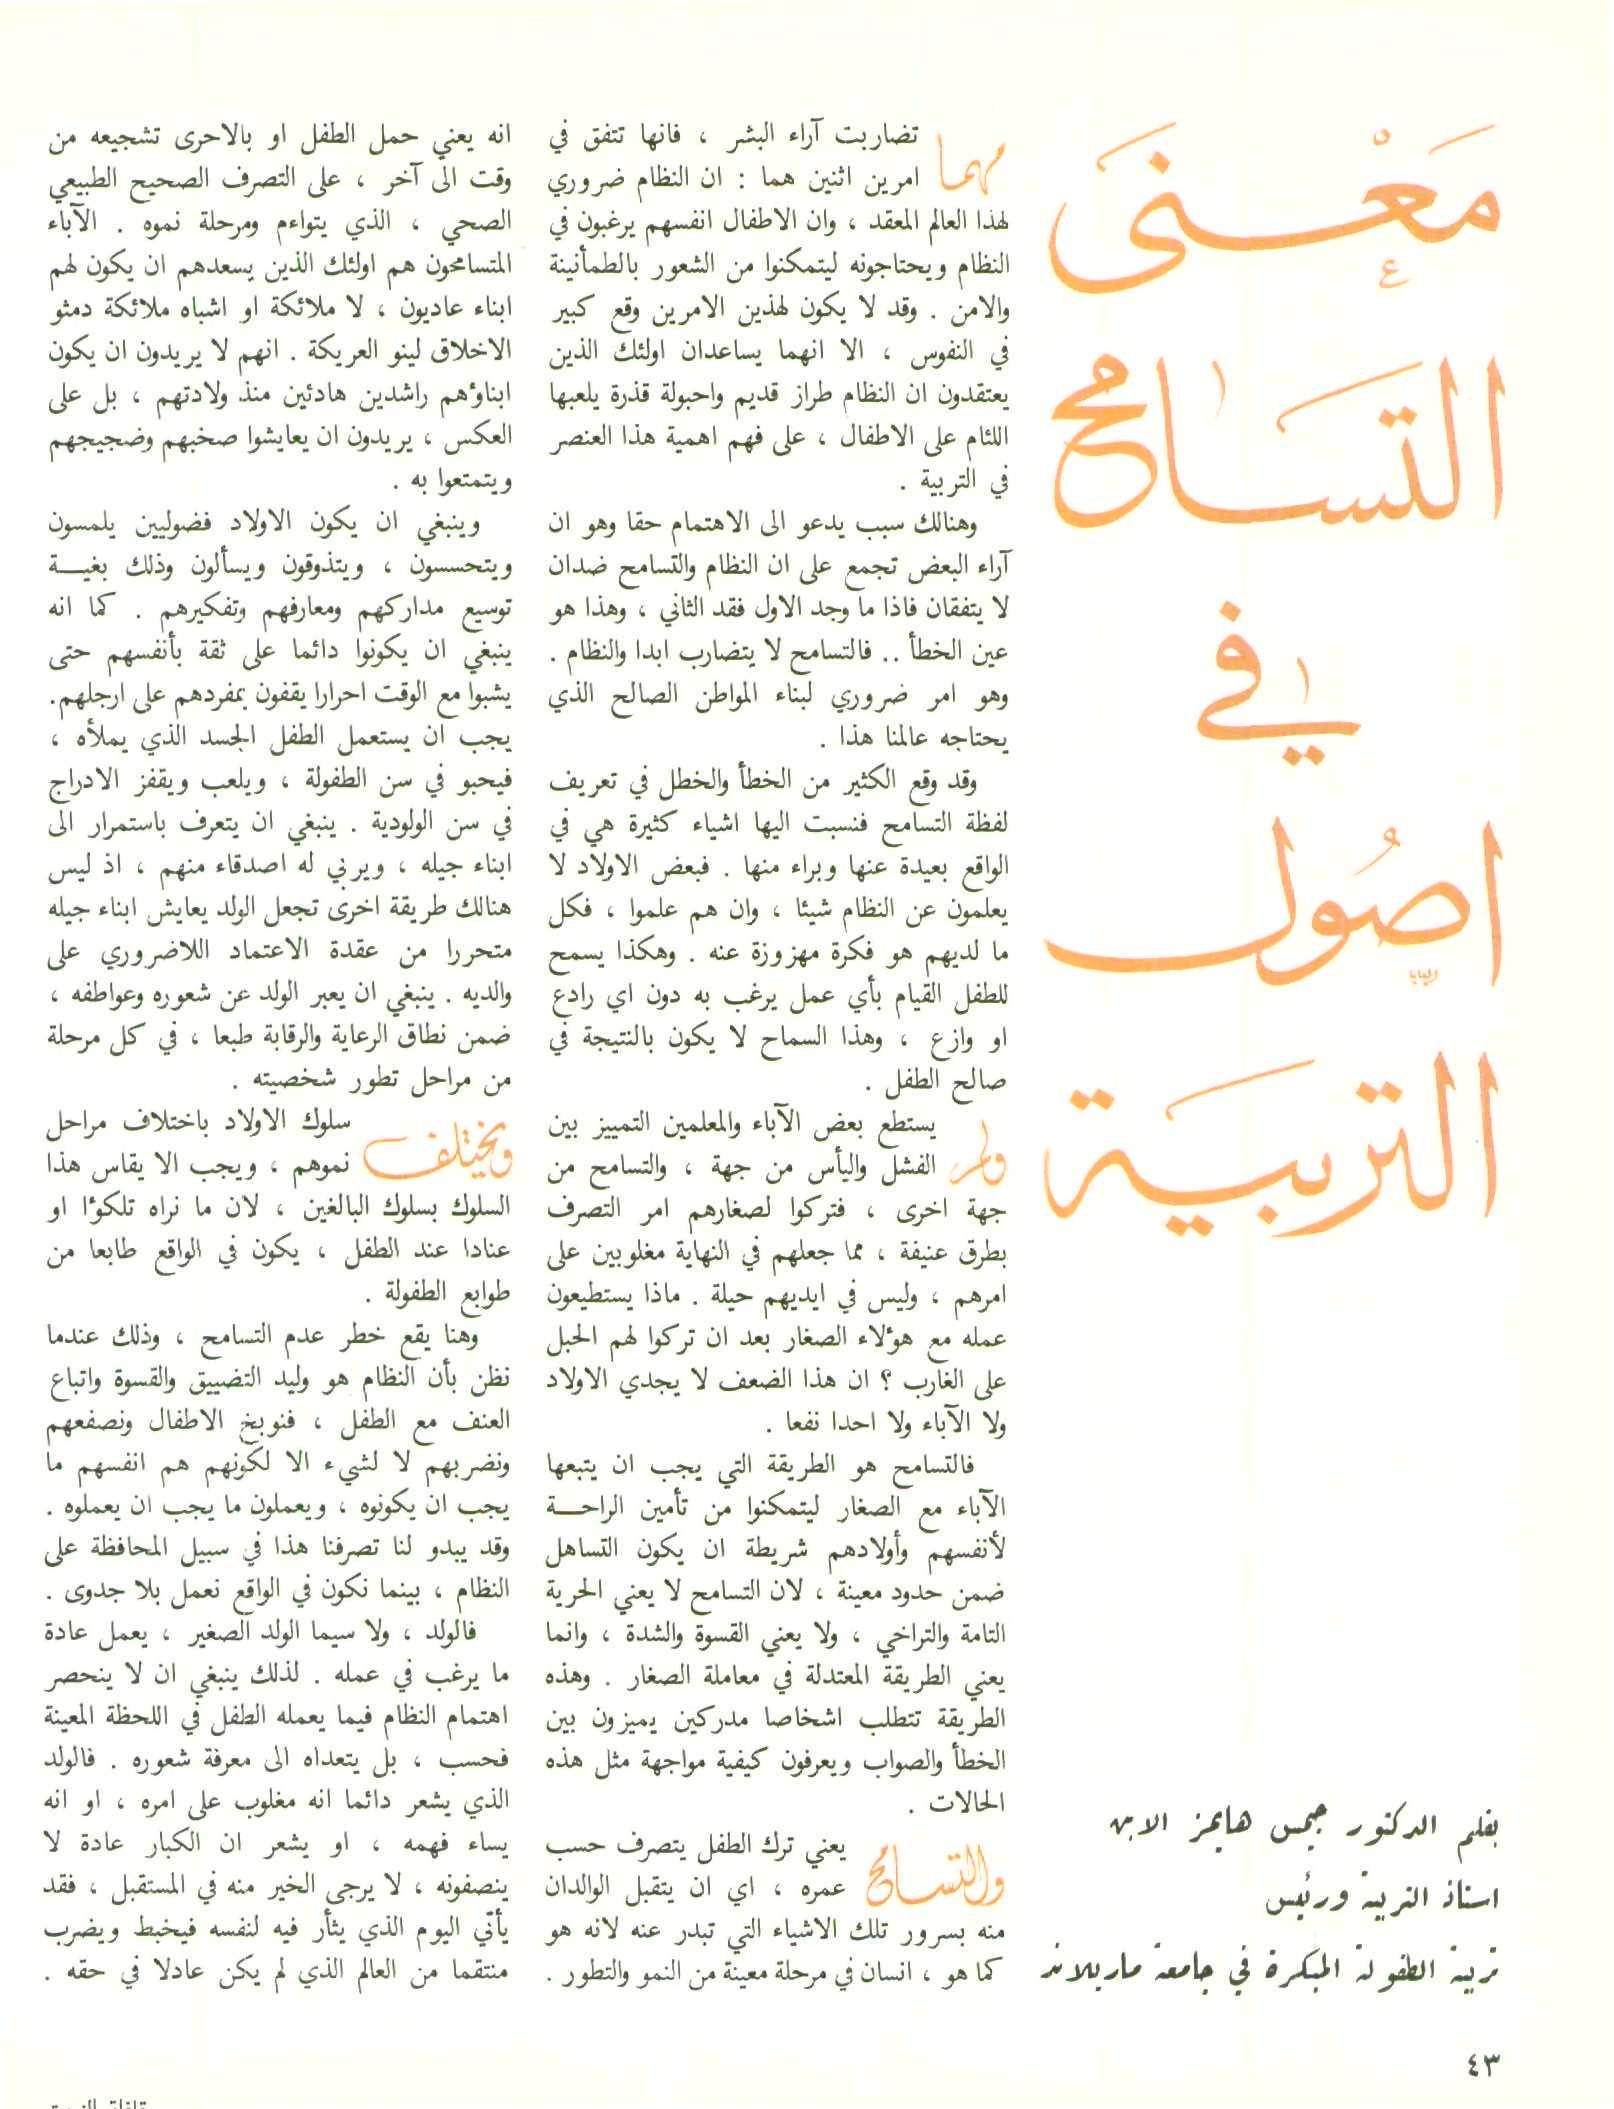 معْنى
التسامح
في
اصُول
التربية
بقلم الدكتور جيمس هايمز الابن
استاذ التربية ورئيس
تربية الطفولة المبكرة في جامعة ماريلاند
مهما تضاربت آراء البشر ، فانها تتفق في
امرين اثنين هما : ان النظام ضروري
لهذا العالم المعقد ، وان الاطفال انفسهم يرغبون في
النظام ويحتاجونه ليتمكنوا من الشعور بالطمأنينة
والامن . وقد لا يكون لهذين الامرين وقع كبير
في النفوس ، الا انهما يساعدان اولئك الذين
يعتقدون ان النظام طراز قديم واحبولة قذرة يلعبها
اللئام على الاطفال ، على فهم اهمية هذا العنصر
في التربية .
وهنالك سبب يدعو الى الاهتمام حقا وهو ان
آراء البعض تجمع على ان النظام والتسامح ضدان
لا يتفقان فاذا ما وجد الاول فقد الثاني ، وهذا هو
عين الخطأ .. فالتسامح لا يتضارب ابدا والنظام .
وهو امر ضروري لبناء المواطن الصالح الذي
يحتاجه عالمنا هذا .
وقد وقع الكثير من الخطأ والخطل في تعريف
لفظة التسامح فنسبت اليها اشياء كثيرة هي في
الواقع بعيدة عنها وبراء منها . فبعض الاولاد لا
يعلمون عن النظام شيئا ، وان هم علموا ، فكل
ما لديهم هو فكرة مهزوزة عنه . وهكذا يسمح
للطفل القيام بأي عمل يرغب به دون اي رادع
او وازع ، وهذا السماح لا يكون بالنتيجة في
صالح الطفل .
ولم يستطع بعض الآباء والمعلمين التمييز بين
الفشل واليأس من جهة ، والتسامح من
جهة اخرى ، فتركوا لصغارهم امر التصرف
بطرق عنيفة ، مما جعلهم في النهاية مغلوبين على
امرهم ، وليس في ايديهم حيلة . ماذا يستطيعون
عمله مع هؤلاء الصغار بعد ان تركوا لهم الحبل
على الغارب ؟ ان هذا الضعف لا يجدي الاولاد
ولا الآباء ولا احدا نفعا .
فالتسامح هو الطريقة التي يجب ان يتبعها
الآباء مع الصغار ليتمكنوا من تأمين الراحــة
لأنفسهم وأولادهم شريطة ان يكون التساهل
ضمن حدود معينة ، لان التسامح لا يعني الحرية
التامة والتراخي ، ولا يعني القسوة والشدة ، وانما
يعني الطريقة المعتدلة في معاملة الصغار . وهذه
الطريقة تتطلب اشخاصا مدركين يميزون بين
الخطأ والصواب ويعرفون كيفية مواجهة مثل هذه
الحالات .
والتسامح يعني ترك الطفل يتصرف حسب
عمره ، اي ان يتقبل الوالدان
منه بسرور تلك الاشياء التي تبدر عنه لانه هو
كما هو ، انسان في مرحلة معينة من النمو والتطور .
انه يعني حمل الطفل او بالاحرى تشجيعه من
وقت الى آخر ، على التصرف الصحيح الطبيعي
الصحي ، الذي يتواءم ومرحلة نموه . الآباء
المتسامحون هم اولئك الذين يسعدهم ان يكون لهم
ابناء عاديون ، لا ملائكة او اشباه ملائكة دمثو
الاخلاق لينو العريكة . انهم لا يريدون ان يكون
ابناؤهم راشدين هادئين منذ ولادتهم ، بل على
العكس ، يريدون ان يعايشوا صخبهم وضجيجهم
ويتمتعوا به .
وينبغي ان يكون الاولاد فضوليين يلمسون
ويتحسسون ، ويتذوقون ويسألون وذلك بغيــة
توسيع مداركهم ومعارفهم وتفكيرهم . كما انه
ينبغي ان يكونوا دائما على ثقة بأنفسهم حتى
يشبوا مع الوقت احرارا يقفون بمفردهم على ارجلهم.
يجب ان يستعمل الطفل الجسد الذي يملأه ،
فيحبو في سن الطفولة ، ويلعب ويقفز الادراج
في سن الولودية . ينبغي ان يتعرف باستمرار الى
ابناء جيله ، ويربي له اصدقاء منهم ، اذ ليس
هنالك طريقة اخرى تجعل الولد يعايش ابناء جيله
متحررا من عقدة الاعتماد اللاضروري على
والديه . ينبغي ان يعبر الولد عن شعوره وعواطفه ،
ضمن نطاق الرعاية والرقابة طبعا ، في كل مرحلة
من مراحل تطور شخصيته .
ويختلف سلوك الاولاد باختلاف مراحل
نموهم ، ويجب الا يقاس هذا
السلوك بسلوك البالغين ، لان ما نراه تلكؤا او
عنادا عند الطفل ، يكون في الواقع طابعا من
طوابع الطفولة .
وهنا يقع خطر عدم التسامح ، وذلك عندما
نظن بأن النظام هو وليد التضييق والقسوة واتباع
العنف مع الطفل ، فنوبخ الاطفال ونصفعهم
ونضربهم لا لشيء الا لكونهم هم انفسهم ما
يجب ان يكونوه ، ويعملون ما يجب ان يعملوه .
وقد يبدو لنا تصرفنا هذا في سبيل المحافظة على
النظام ، بينما نكون في الواقع نعمل بلا جدوى .
فالولد ، ولا سيما الولد الصغير ، يعمل عادة
ما يرغب في عمله . لذلك ينبغي ان لا ينحصر
اهتمام النظام فيما يعمله الطفل في اللحظة المعينة
فحسب ، بل يتعداه الى معرفة شعوره . فالولد
الذي يشعر دائما انه مغلوب على امره ، او انه
يساء فهمه ، او يشعر ان الكبار عادة لا
ينصفونه ، لا يرجى الخير منه في المستقبل ، فقد
يأتي اليوم الذي يثأر فيه لنفسه فيخبط ويضرب
منتقما من العالم الذي لم يكن عادلا في حقه .
٤٣